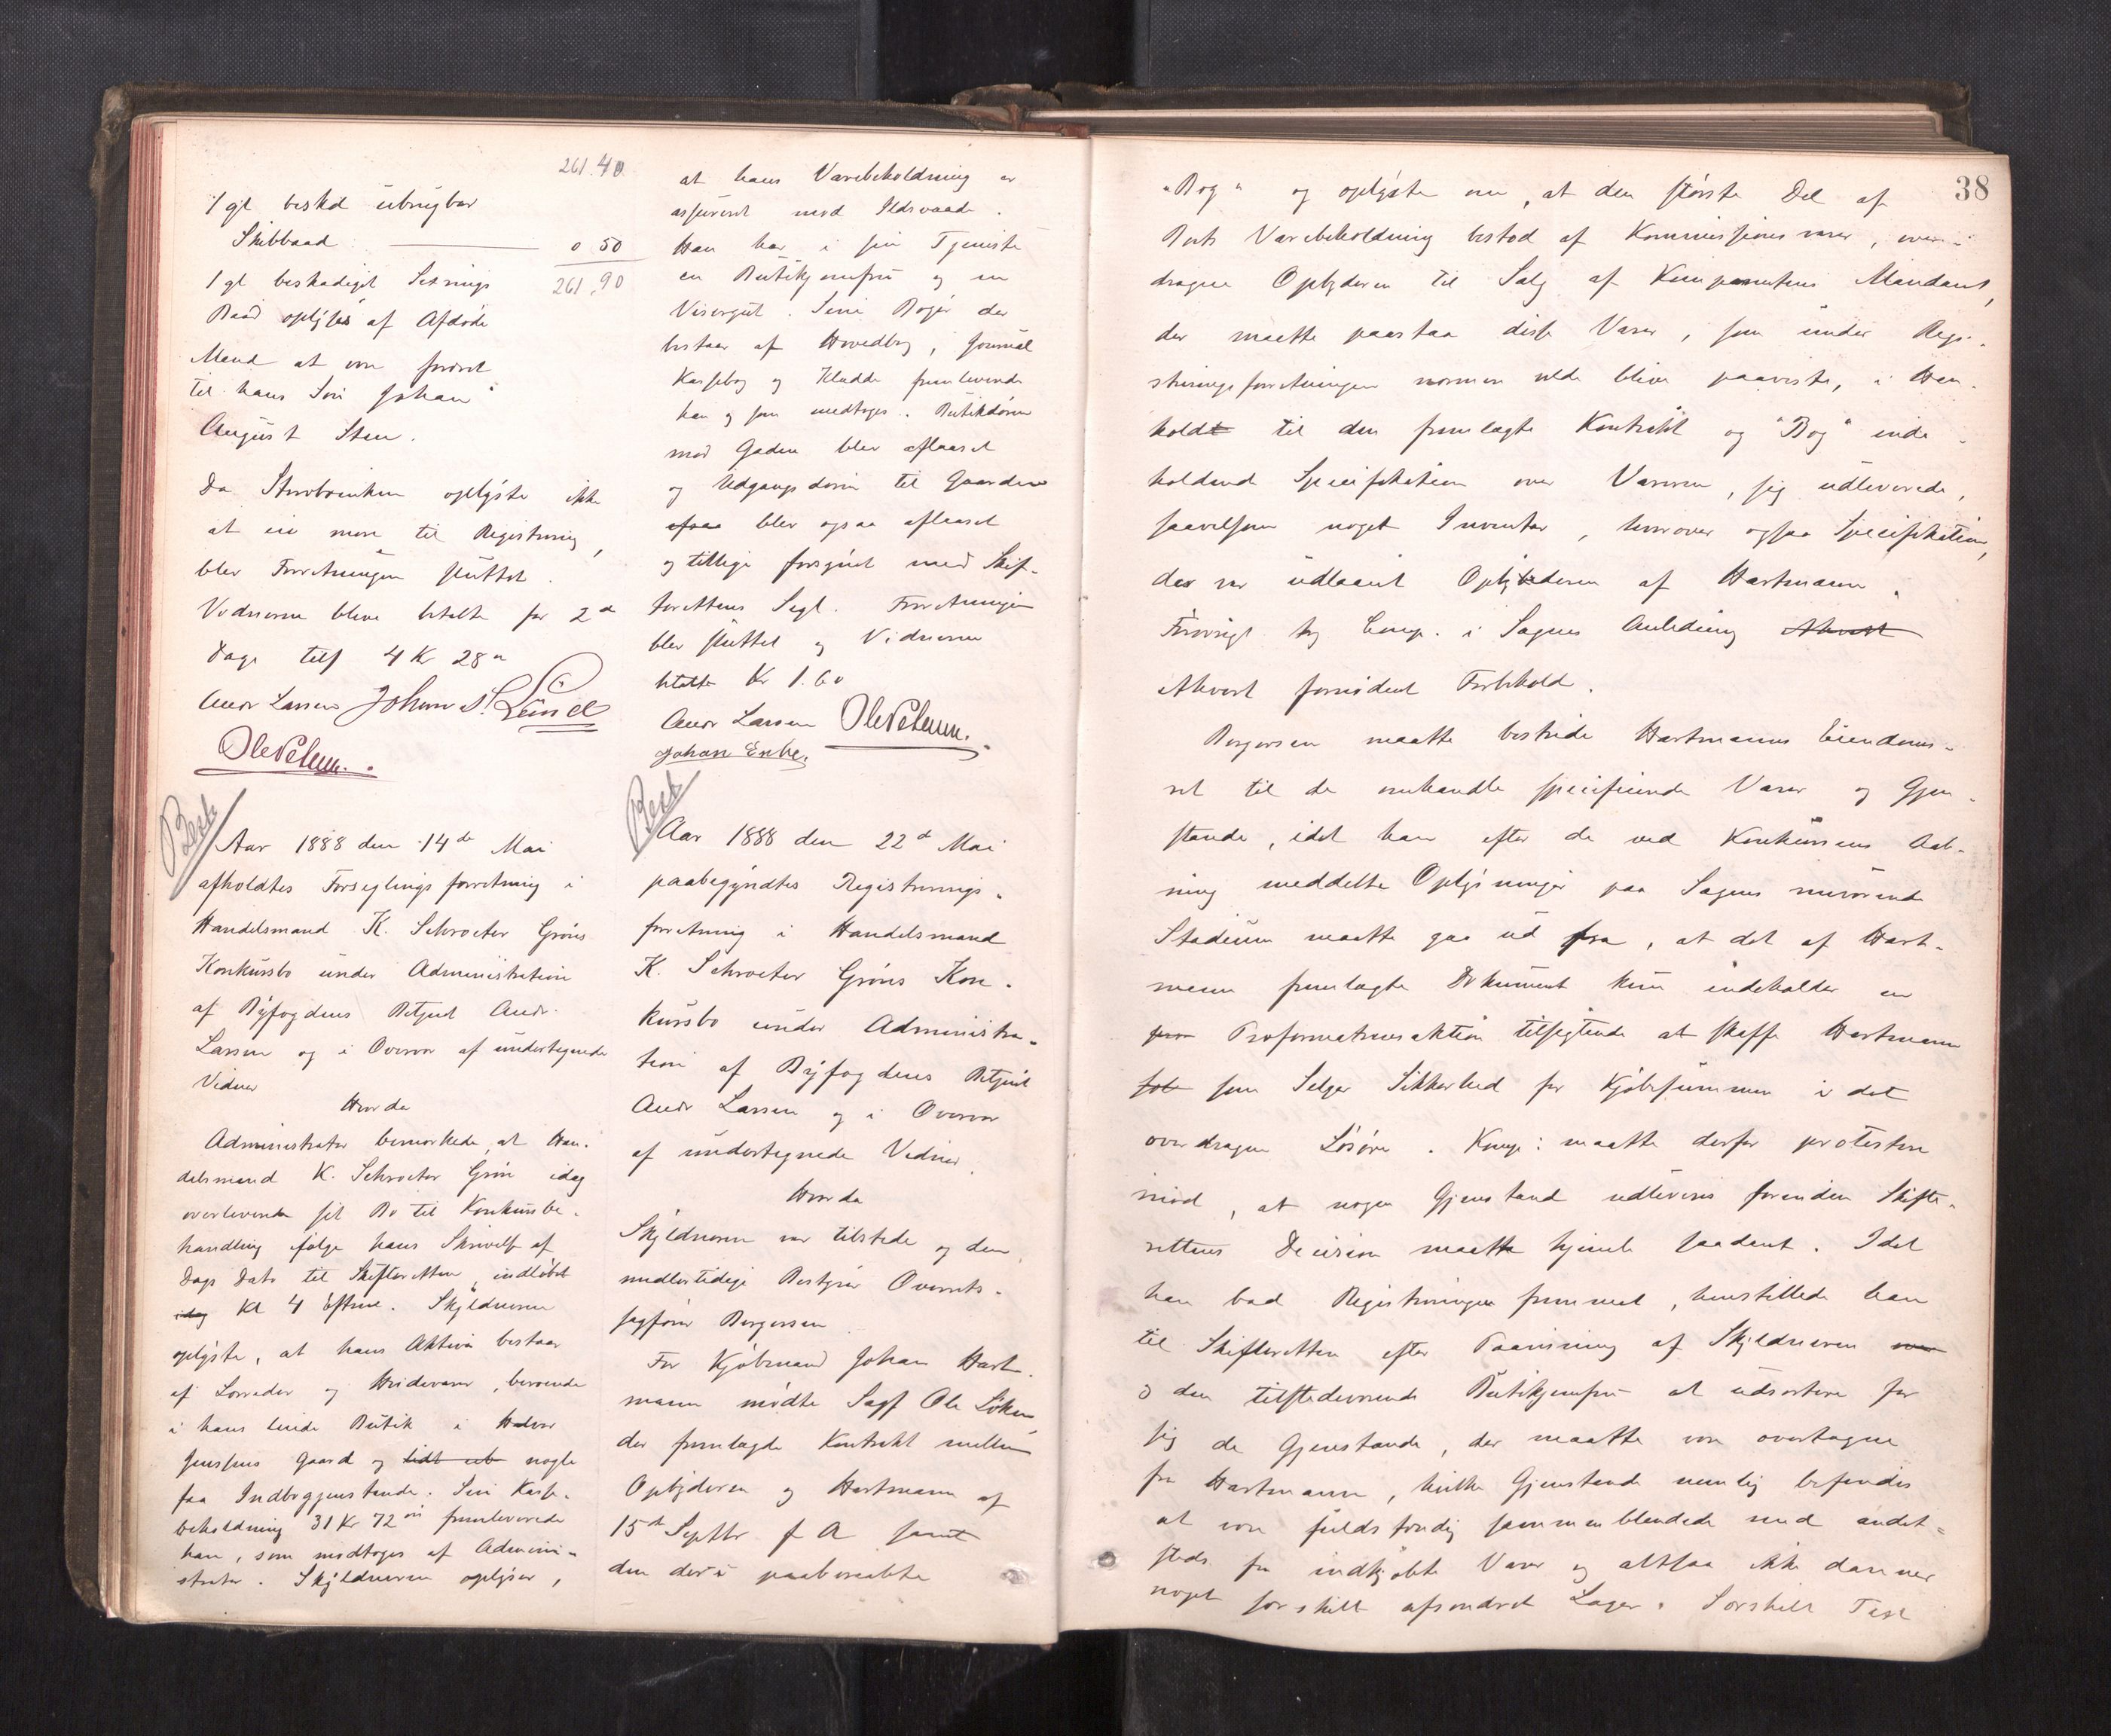 261.40
1 gl beskd ubrugbar
Skibbaad 0 50
1 gl beskadiget Setnings 261,90
Baad oplyses af Afdøde
Mand at være foræret
til hans Søn Johan
August Sten.
Da Stervboenken oplyste ikke
at eie mere til Registrering,
blev Forretningen sluttet.
Vidnerne bleve betalte for 2d
Dage tils 4 Kr 28 ø
Andr Larsen Johan S. Lund
Ole Pelum.
Besk
Aar 1888 den 14de Mai
afholdtes Forseglingsforretning i
Handelsmand K. Schroeter Grøns
Konkursbo under Administration
af Byfogdens Betjent Andr.
Larsen og i Overvær af undertegnede
Vidner
Hvorda
Administrator bemærkede, at Han-
delsmand K. Schroeter Grøn idag
overleverede sit Bo til Konkursbe-
handling ifølge hans Skrivelse af
Dags Dato til Skifteretten, indløbet
idag Kl 4 Efterm. Skyldneren
oplyste, at hans Aktiva bestaar
af Lærreder og Hvidevarer, beroende
i hans leiede Butik i Halvor
Jensens Gaard og lidt ub nogle
faa Indbogjenstande. Sin Kasse-
beholdning 31 Kr 72 øre fremleverede
han, som modtoges af Admini-
strator. Skyldneren oplyser,
at hans Varebeholdning er
assureret mod Ildsvaade.
Han har i sin Tjeneste
en Butikjomfru og en
Visergut. Sine Bøger der
bestaar af Hovedbog, Journal
Kassebog og Kladde fremleverede
han og som medtoges. Butikdøren
mod Gaden blev aflaaset
og Udgangsdøren til Gaarden
ofsaa blev ogsaa aflaaset
og tillige forsynet med Skif-
terettens Segl. Forretningen
blev sluttet og Vidnerne
betalte Kr 1.60
Andr Larsen Ole Pelum.
Johan Enke.
Besk
Aar 1888 den 22d Mai
paabegyndtes Registrerings-
forretning i Handelsmand
K. Schroeter Grøns Kon-
kursbo under Administra-
tion af Byfogdens Betjent
Andr Larsen og i Overvær
af undertegnede Vidner.
Hvorda
Skyldneren var tilstede og den
midlertidige Bestyrer Overrets-
sagfører Borgersen
For Kjøbmand Johan Hart-
mann mødte Sagf Ole Løken
der fremlagde Kontrakt mellem
Opbyderen og Hartmann af
15de Septbr f A samt
den deri paaberaabte
38
"Bog" og oplyste om, at den største Del af
Boets Varebeholdning bestod af Kommissionsvarer, over-
dragne Opbyderen til Salg af Komparentens Mandant,
der maatte paastaa disse Varer, som under Regi-
streringsforretningen nærmere vilde blive paaviste, i Hen-
holdt til den fremlagte Kontrakt og "Bog" inde-
holdende Specifikation over Varerne, sig udleverede,
saavelsom noget Inventar, hvorover ogsaa Specifikation,
der var udlaant Opbyderen af Hartmann.
Forøvrigt tog Comp. i Sagens Anledning Ethvert
ethvert fornødent Forbehold.
Borgersen maatte bestride Hartmanns Eiendoms-
ret til de omhandlede specificerede Varer og Gjen-
stande, idet han efter de ved Konkursens Aab-
ning meddelte Oplysninger paa Sagens nuværende
Stadium maatte gaa ud fra, at det af Hart-
mann fremlagte Dokument kun indeholder en
pro Proformatransaktion tilsigtende at skaffe Hartmann
som Sælger Sikkerhed for Kjøbesummen i det
overdragne Løsøre. Komp: maatte derfor protestere
mod, at nogen Gjenstand udleveres forinden Skifte-
rettens Decision maatte hjemle saadant. Idet
han bad Registreringen fremmet, henstillede han
til Skifteretten efter Paavisning af Skyldneren
og den tilstedeværende Butikjomfru at udsortere for
sig de Gjenstande, der maatte være overtagne
fra Hartmann, hvilke Gjenstande nemlig befandtes
at være fuldstændig sammenblandede med andet-
steds fra indkjøbte Varer og altsaa ikke danner
noget særskilt afsondret Lager. Særskilt Taxt